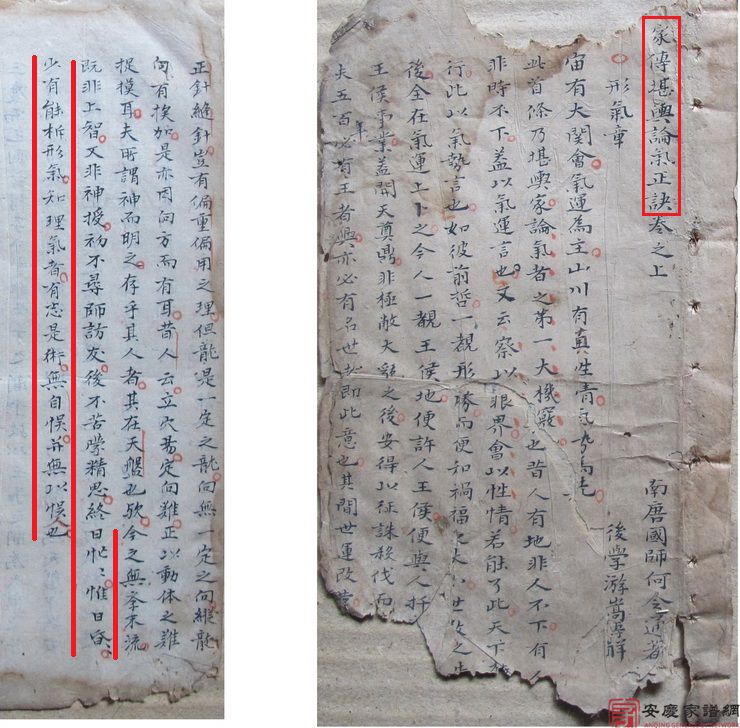 家傳堪輿論氣正訣卷之上
南唐國師何令通著
形氣章
後學游嵩學解
宙有大関會氣運為主山川有真性情氣勢為先
此首條乃堪輿家論氣者之第一大機竅也昔人有地非人不下有人
非時不下蓋以氣運言也又云察以眼界會以性情若能了此天下
行此以氣勢言也如彼前哲一覩形勝而便知禍福之大小世代之
後全在氣運上卜之今人一覩王侯地便許人王侯便與人扞
王侯事業蓋開天奠鼎非極敝大亂之後安得以征誅移伐而
夫五百年必有王者興亦必有名世者即此意也其間世運改革
正針縫針豈有偏重偏用之理但龍是一定之龍向無一定之向縱龍
向有挨加是亦因向方而有耳昔人云立穴易定向難正以動体之難
捉摸耳夫所謂神而明之存乎其人者其在天盤也歟今之無本末流
既非上智又非神授初不尋師訪友後不苦學精思終日忙忙惟日昏
少有能析形氣知理氣者有志是術無自悞并無以悞人也
安慶家譜網